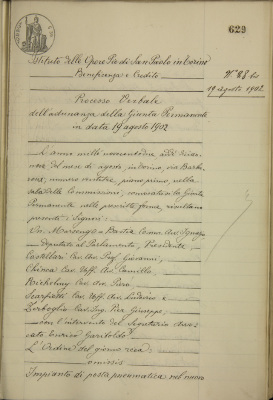 629
Istituto delle Opere Pie di San Paolo in Torino
Beneficenza e Credito
N° 88 bis
19 agosto 1902
Processo Verbale
dell'adunanza della Giunta Permanente
in data 19 agosto 1902
L'anno millenovecentodue addì dician
nove del mese di agosto in Torino, via Barba
roux, numero ventotto, piano primo, nella
sala delle Commissioni, convocatasi la Giunta
Permanente nelle prescritte forme, risultano
presenti i Signori:
On. Marsengo Bastia Comm. Avv. Ignazio
deputato al Parlamento, Presidente
Castellari Cav. Avv. Giovanni,
Chiesa Cav. Uff. Avv. Camillo,
Richelmy Cav. Avv. Piero
Scarfiotti Cav. Uff. Avv. Lodovico e
Zerboglio Cav. Ing. Pier Giuseppe,
con l'intervento del Segretario Avvo
cato Enrico Garitoldo
L'Ordine del giorno reca:
omissis
Impianto di posta pneumatica nel nuovo